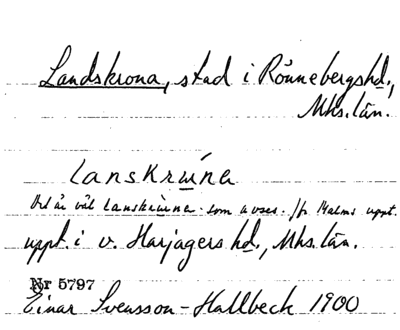 Landskrona, stad i Rönnebergshd.,
Mhs. län.
Lanskrɯ́na
Det är väl Lanskrɯ̀na som avses. jfr Malmö uppt.
uppt. i v. Harjagers hd., Mhs. län.
Nr 5797
Einar Svensson-Hallbeck 1900